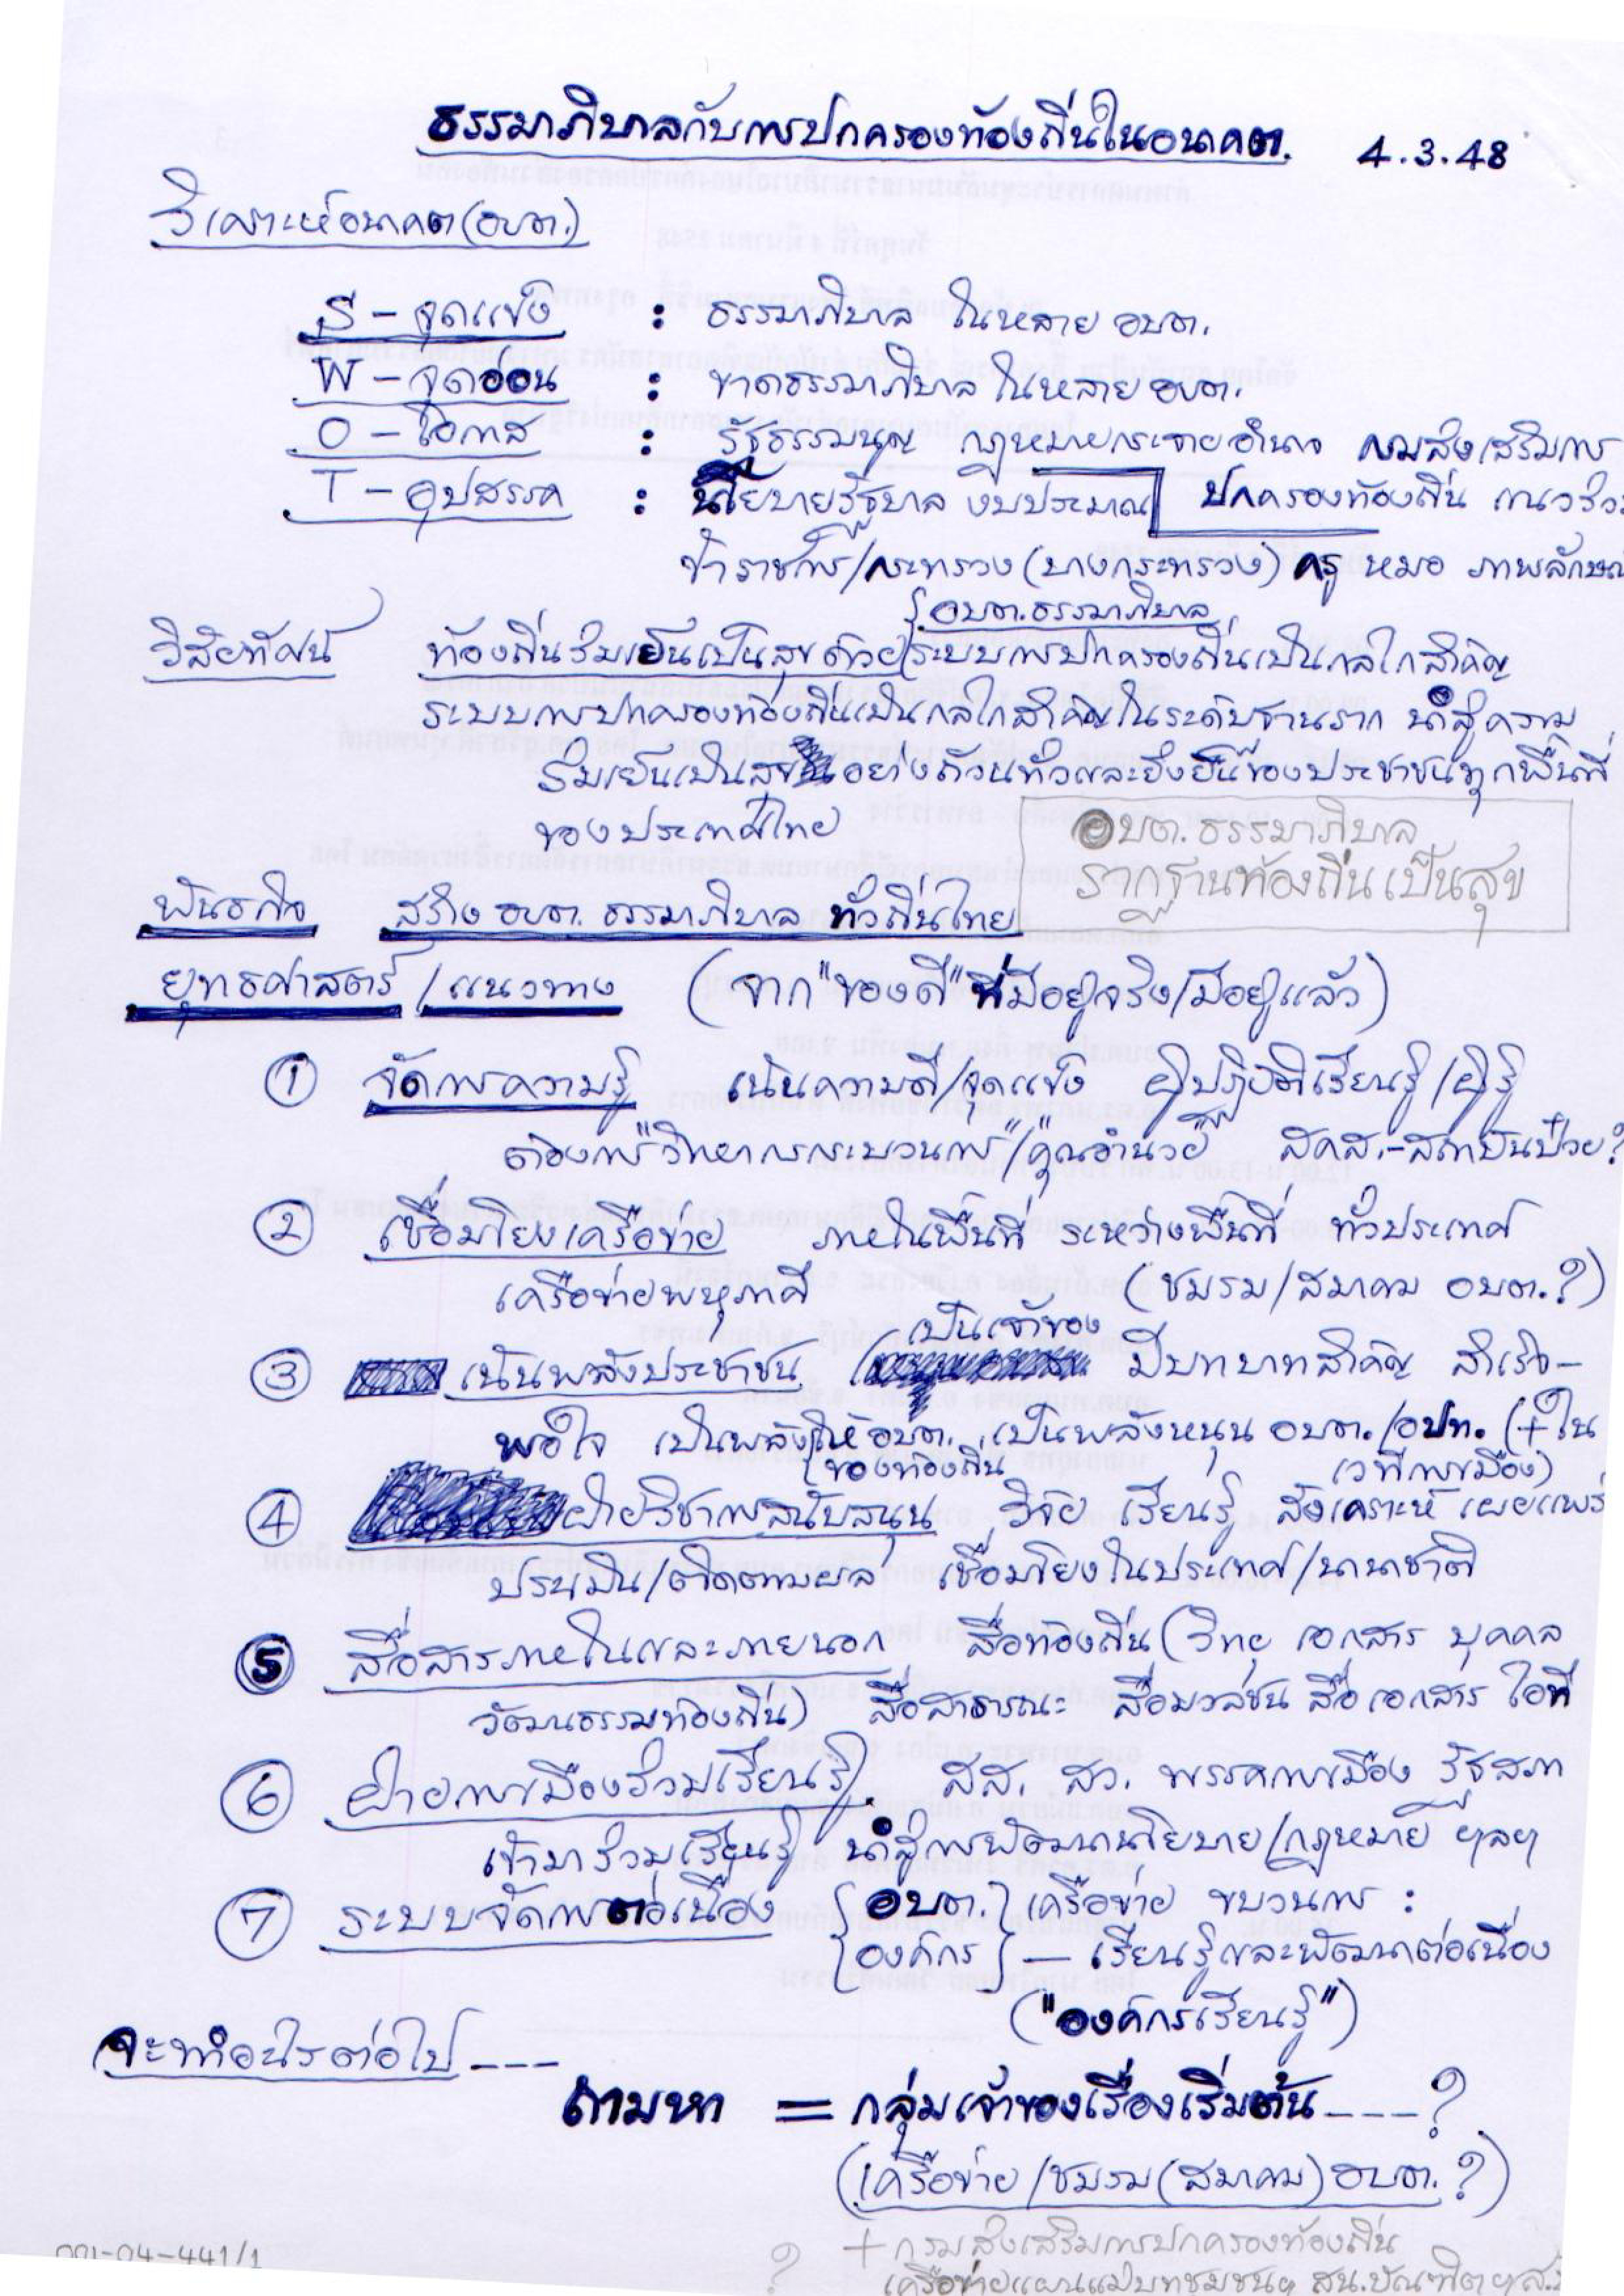 ธรรมาภิบาลกับการปกครองท้องถิ่นในอนาคต. 4.3.48
วิเคราะห์อนาคต (อบต.)
S - จุดแข็ง : ธรรมาภิบาล ในหลาย อบต.
W - จุดอ่อน : ขาดธรรมาภิบาล ในหลาย อบต.
O - โอกาส : รัฐธรรมนูญ กฎหมายกระจายอำนาจ กรมส่งเสริมการ
ปกครองท้องถิ่น แนวร่วม
T - อุปสรรค : นโยบายรัฐบาล งบประมาณ
ข้าราชการ/กระทรวง (บางกระทรวง) ครู หมอ ภาพลักษณ์
{อบต.ธรรมาภิบาล
วิสัยทัศน์ ท้องถิ่นร่มเย็นเป็นสุขด้วยระบบการปกครองท้องถิ่นเป็นกลไกสำคัญ
ระบบการปกครองท้องถิ่นเป็นกลไกสำคัญในระดับฐานราก นำสู่ความ
ร่มเย็นเป็นสุขอย่างถ้วนทั่วและยั่งยืนของประชาชนทุกพื้นที่
ของประเทศไทย
อบต.ธรรมาภิบาล
รากฐานท้องถิ่นเป็นสุข
พันธกิจ สร้าง อบต. ธรรมาภิบาล ทั่วถิ่นไทย
ยุทธศาสตร์ / แนวทาง (จาก "ของดี" ที่มีอยู่จริง/มีอยู่แล้ว)
① จัดการความรู้ เน้นความดี/จุดแข็ง ผู้ปฏิบัติเรียนรู้/ผู้รู้
ต้องการ "วิทยากรกระบวนการ"/"คุณอำนวย" สคส.-สถาบันป๋วย?
② เชื่อมโยงเครือข่าย ภายในพื้นที่ ระหว่างพื้นที่ ทั่วประเทศ
เครือข่ายพหุภาคี (ชมรม/สมาคม อบต.?)
เป็นเจ้าของ
③ เน้นพลังประชาชน มีบทบาทสำคัญ สำเร็จ-
พอใจ เป็นพลังให้ อบต. เป็นพลังหนุน อบต./อปท. (+ใน
เวทีการเมือง)
ของท้องถิ่น
④ ฝ่ายวิชาการสนับสนุน วิจัย เรียนรู้ สังเคราะห์ เผยแพร่
ประเมิน/ติดตามผล เชื่อมโยงในประเทศ/นานาชาติ
⑤ สื่อสารภายในและภายนอก สื่อท้องถิ่น (วิทยุ เอกสาร บุคคล
วัฒนธรรมท้องถิ่น) สื่อสาธารณะ สื่อมวลชน สื่อเอกสาร ไอที
⑥ ฝ่ายการเมืองร่วมเรียนรู้ สส. สว. พรรคการเมือง รัฐสภา
เข้ามาร่วมเรียนรู้ นำสู่การพัฒนานโยบาย/กฎหมาย ฯลฯ
⑦ ระบบจัดการต่อเนื่อง {อบต.} เครือข่าย ขบวนการ :
{องค์กร} — เรียนรู้และพัฒนาต่อเนื่อง
("องค์กรเรียนรู้")
จะทำอะไรต่อไป ----
ถามหา = กลุ่มเจ้าของเรื่องเริ่มต้น ----?
(เครือข่าย/ชมรม (สมาคม) อบต. ?)
+ กรมส่งเสริมการปกครองท้องถิ่น
? เครือข่ายแผนแม่บทชุมชนฯ สน.บัณฑิตฯ
001-04-441/1